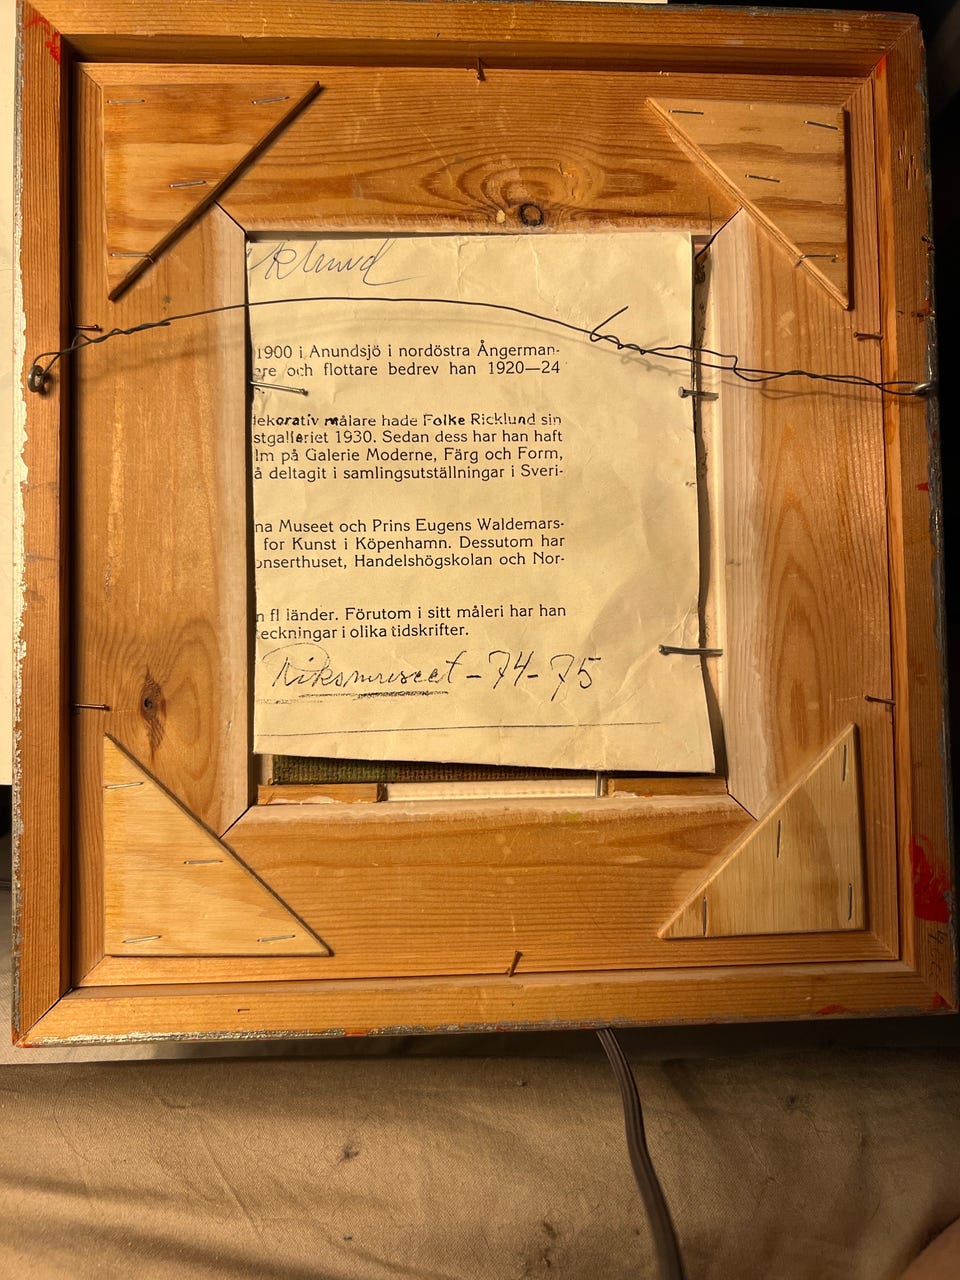 klund
1900 i Anundsjö i nordöstra Ångerman-
are och flottare bedrev han 1920—24
dekorativ målare hade Folke Ricklund sin
stgalleriet 1930. Sedan dess har han haft
lm på Galerie Moderne, Färg och Form,
å deltagit i samlingsutställningar i Sveri-
na Museet och Prins Eugens Waldemars-
for Kunst i Köpenhamn. Dessutom har
onserthuset, Handelshögskolan och Nor-
n fl länder. Förutom i sitt måleri har han
teckningar i olika tidskrifter.
Riksmuseet - 74 - 75